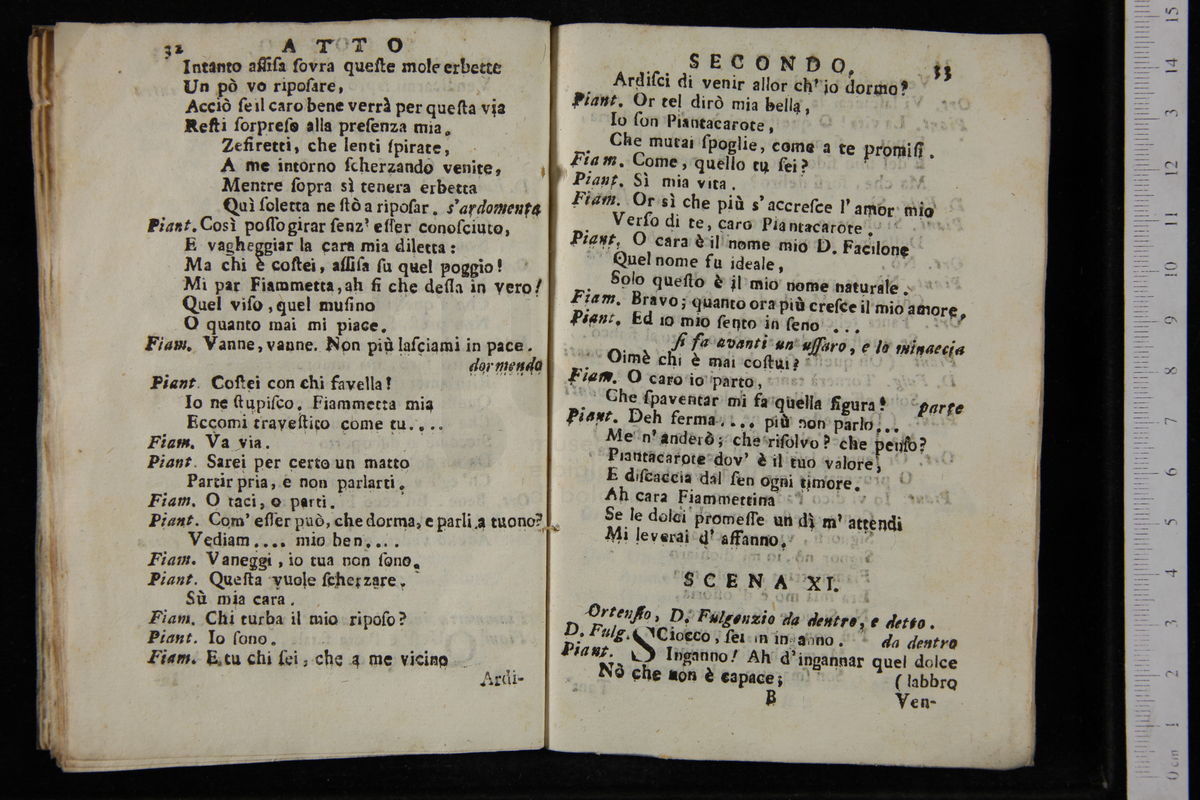 32 ATTO
Intanto aſſiſa ſovra queſte mole erbette
Un pò vo ripoſare,
Acciò ſe il caro bene verrà per queſta via
Reſti ſorpreſo alla preſenza mia.
Zefiretti, che lenti ſpirate,
A me intorno ſcherzando venite,
Mentre ſopra sì tenera erbetta
Quì ſoletta ne ſtò a ripoſar. s'ardomenta
Piant. Così poſſo girar ſenz' eſſer conoſciuto,
E vagheggiar la cara mia diletta:
Ma chi è coſtei, aſſiſa ſu quel poggio!
Mi par Fiammetta, ah ſi che deſſa in vero!
Quel viſo, quel muſino
O quanto mai mi piace.
Fiam. Vanne, vanne. Non più laſciami in pace.
dormendo
Piant. Coſtei con chi favella!
Io ne ſtupiſco. Fiammetta mia
Eccomi traveſtito come tu....
Fiam. Va via.
Piant. Sarei per certo un matto
Partir pria, e non parlarti.
Fiam. O taci, o parti.
Piant. Com' eſſer può, che dorma, e parli a tuono?
Vediam.... mio ben....
Fiam. Vaneggi, io tua non ſono.
Piant. Queſta vuole ſcherzare.
Sù mia cara.
Fiam. Chi turba il mio ripoſo?
Piant. Io ſono.
Fiam. E tu chi ſei, che a me vicino
Ardi-
SECONDO. 33
Ardiſci di venir allor ch' io dormo?
Piant. Or tel dirò mia bella,
Io ſon Piantacarote,
Che mutai ſpoglie, come a te promiſi.
Fiam. Come, quello tu ſei?
Piant. Sì mia vita.
Fiam. Or sì che più s'accreſce l'amor mio
Verſo di te, caro Piantacarote.
Piant. O cara è il nome mio D. Facilone
Quel nome fu ideale,
Solo queſto è il mio nome naturale.
Fiam. Bravo; quanto ora più creſce il mio amore.
Piant. Ed io mio ſento in ſeno ...
ſi fa avanti un uſſaro, e lo minaccia
Oimè chi è mai coſtui?
Fiam. O caro io parto,
Che ſpaventar mi fa quella figura! parte
Piant. Deh ferma.... più non parlo...
Me n'anderò; che riſolvo? che penſo?
Piantacarote dov' è il tuo valore,
E diſcaccia dal ſen ogni timore.
Ah cara Fiammettina
Se le dolci promeſſe un dì m' attendi
Mi leverai d' affanno.
SCENA XI.
Ortenſio, D. Fulgenzio da dentro, e detto.
D. Fulg. SCiocco, ſei in inganno. da dentro
Piant. Inganno! Ah d'ingannar quel dolce
Nò che non è capace; (labbro
B Ven-